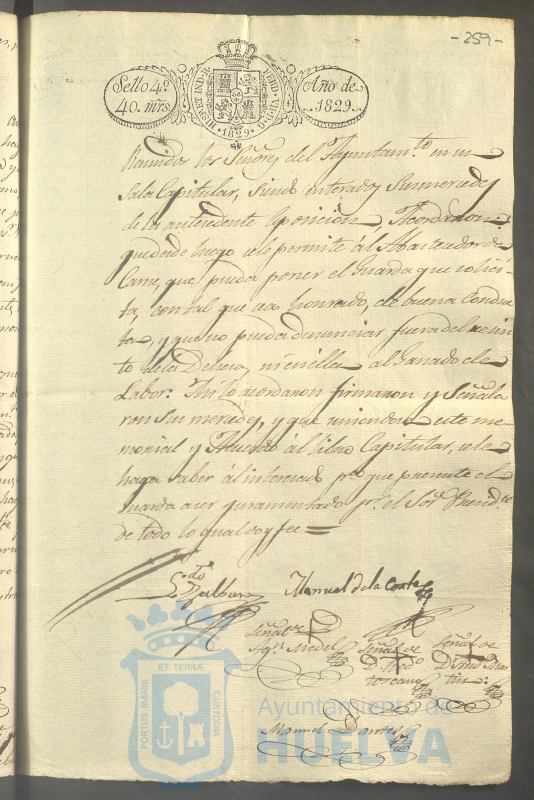 - 259 -
Sello 4º
40. mrs.
HISP. ET IND. R.
FERD. VII D. G.
· 1829 ·
Año de
1829.
Reunidos los Señores del Ayuntam.to en su
Sala Capitular, siendo enterados sus mercedes
de la antecedente esposicion, Acordaron:
que desde luego se le permite ál Abastecedor de
Carne, que pueda poner el Guarda que solici-
ta, con tal que sea honrado, de buena Conduc-
ta, y que no pueda denunciar fuera del recin-
to de la Dehesa, ni en ella al Ganado de
Labor: Asi lo acordaron firmaron y Señala
ron sus mercedes, y que uniendose este me-
morial y Acuerdo ál libro Capitular, se le
haga saber ál interesado p.a que presente el
Guarda a ser juramentado p.r el Sor. Presid.te
de todo lo qual doy fee =
Manuel de la Corte
Señal de
Señal de
Señal de
Ag.n Medel
D. And. Mar
toscano
tin:
Manuel
PORTUS MARIS
ET TERRÆ
CUSTODIA
Ayuntamiento de
HUELVA